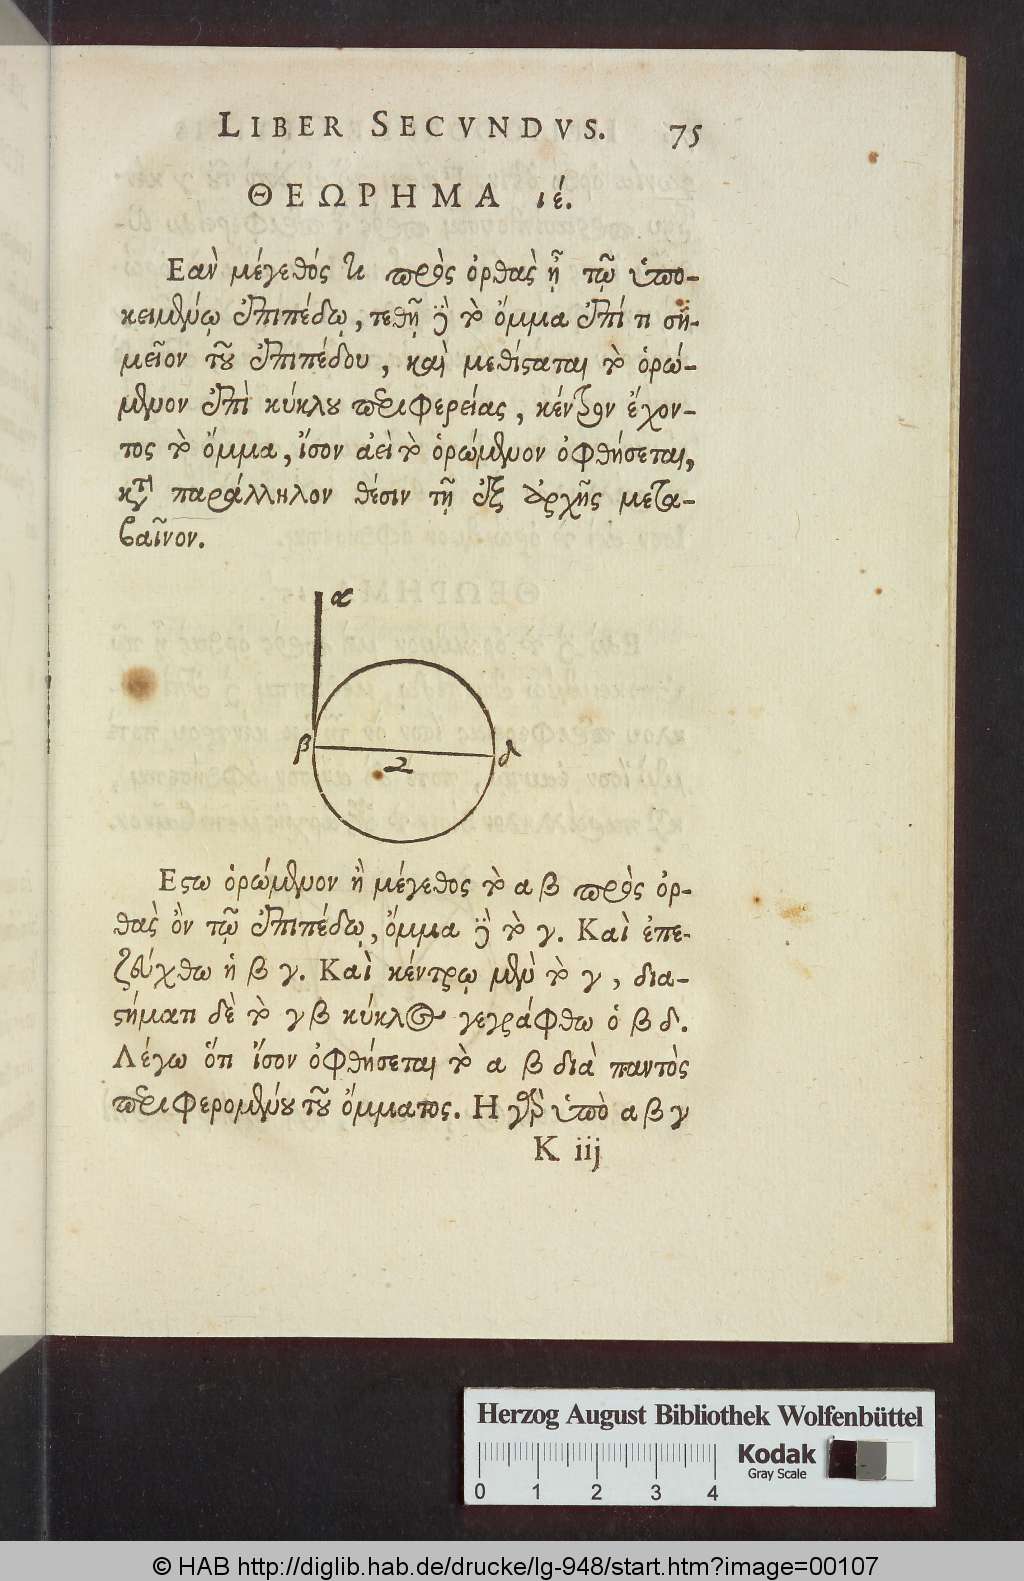 LIBER SECVNDVS. 75
ΘΕΩΡΗΜΑ ιέ.
Εαν̀ μέγεθός τι πρὸς ὀρθας̀ ᾖ τῷ ὑπο-
κειμένῳ ἐπιπέδῳ, τεθῇ δὲ τὸ ὄμμα ἐπί τι ση-
μεῖον τοῦ ἐπιπέδου, καὶ μεθίσταται τὸ ὁρώ-
μενον ἐπὶ κύκλου περιφερείας, κέντρον ἔχον-
τος τὸ ὄμμα, ἴσον ἀεὶ τὸ ὁρώμενον ὀφθήσεται,
κατὰ παράλληλον θέσιν τῇ ἐξ ἀρχῆς μετα-
βαῖνον.
α
β
γ
δ
Εστω ὁρώμενον ἢ μέγεθος τὸ α β πρὸς ὀρ-
θας̀ ὂν τῷ ἐπιπέδῳ, ὄμμα δὲ τὸ γ. Καὶ ἐπε-
ζεύχθω ἡ β γ. Καὶ κέντρῳ μὲν τὸ γ, δια-
στήματι δὲ τὸ γ β κύκλος γεγράφθω ὁ β δ.
Λέγω ὅτι ἴσον ὀφθήσεται τὸ α β διὰ παντὸς
περιφερομένου τοῦ ὄμματος. Η γὰρ ὑπὸ α β γ
K iij
Herzog August Bibliothek Wolfenbüttel
Kodak
Gray Scale
0 1 2 3 4
© HAB http://diglib.hab.de/drucke/lg-948/start.htm?image=00107